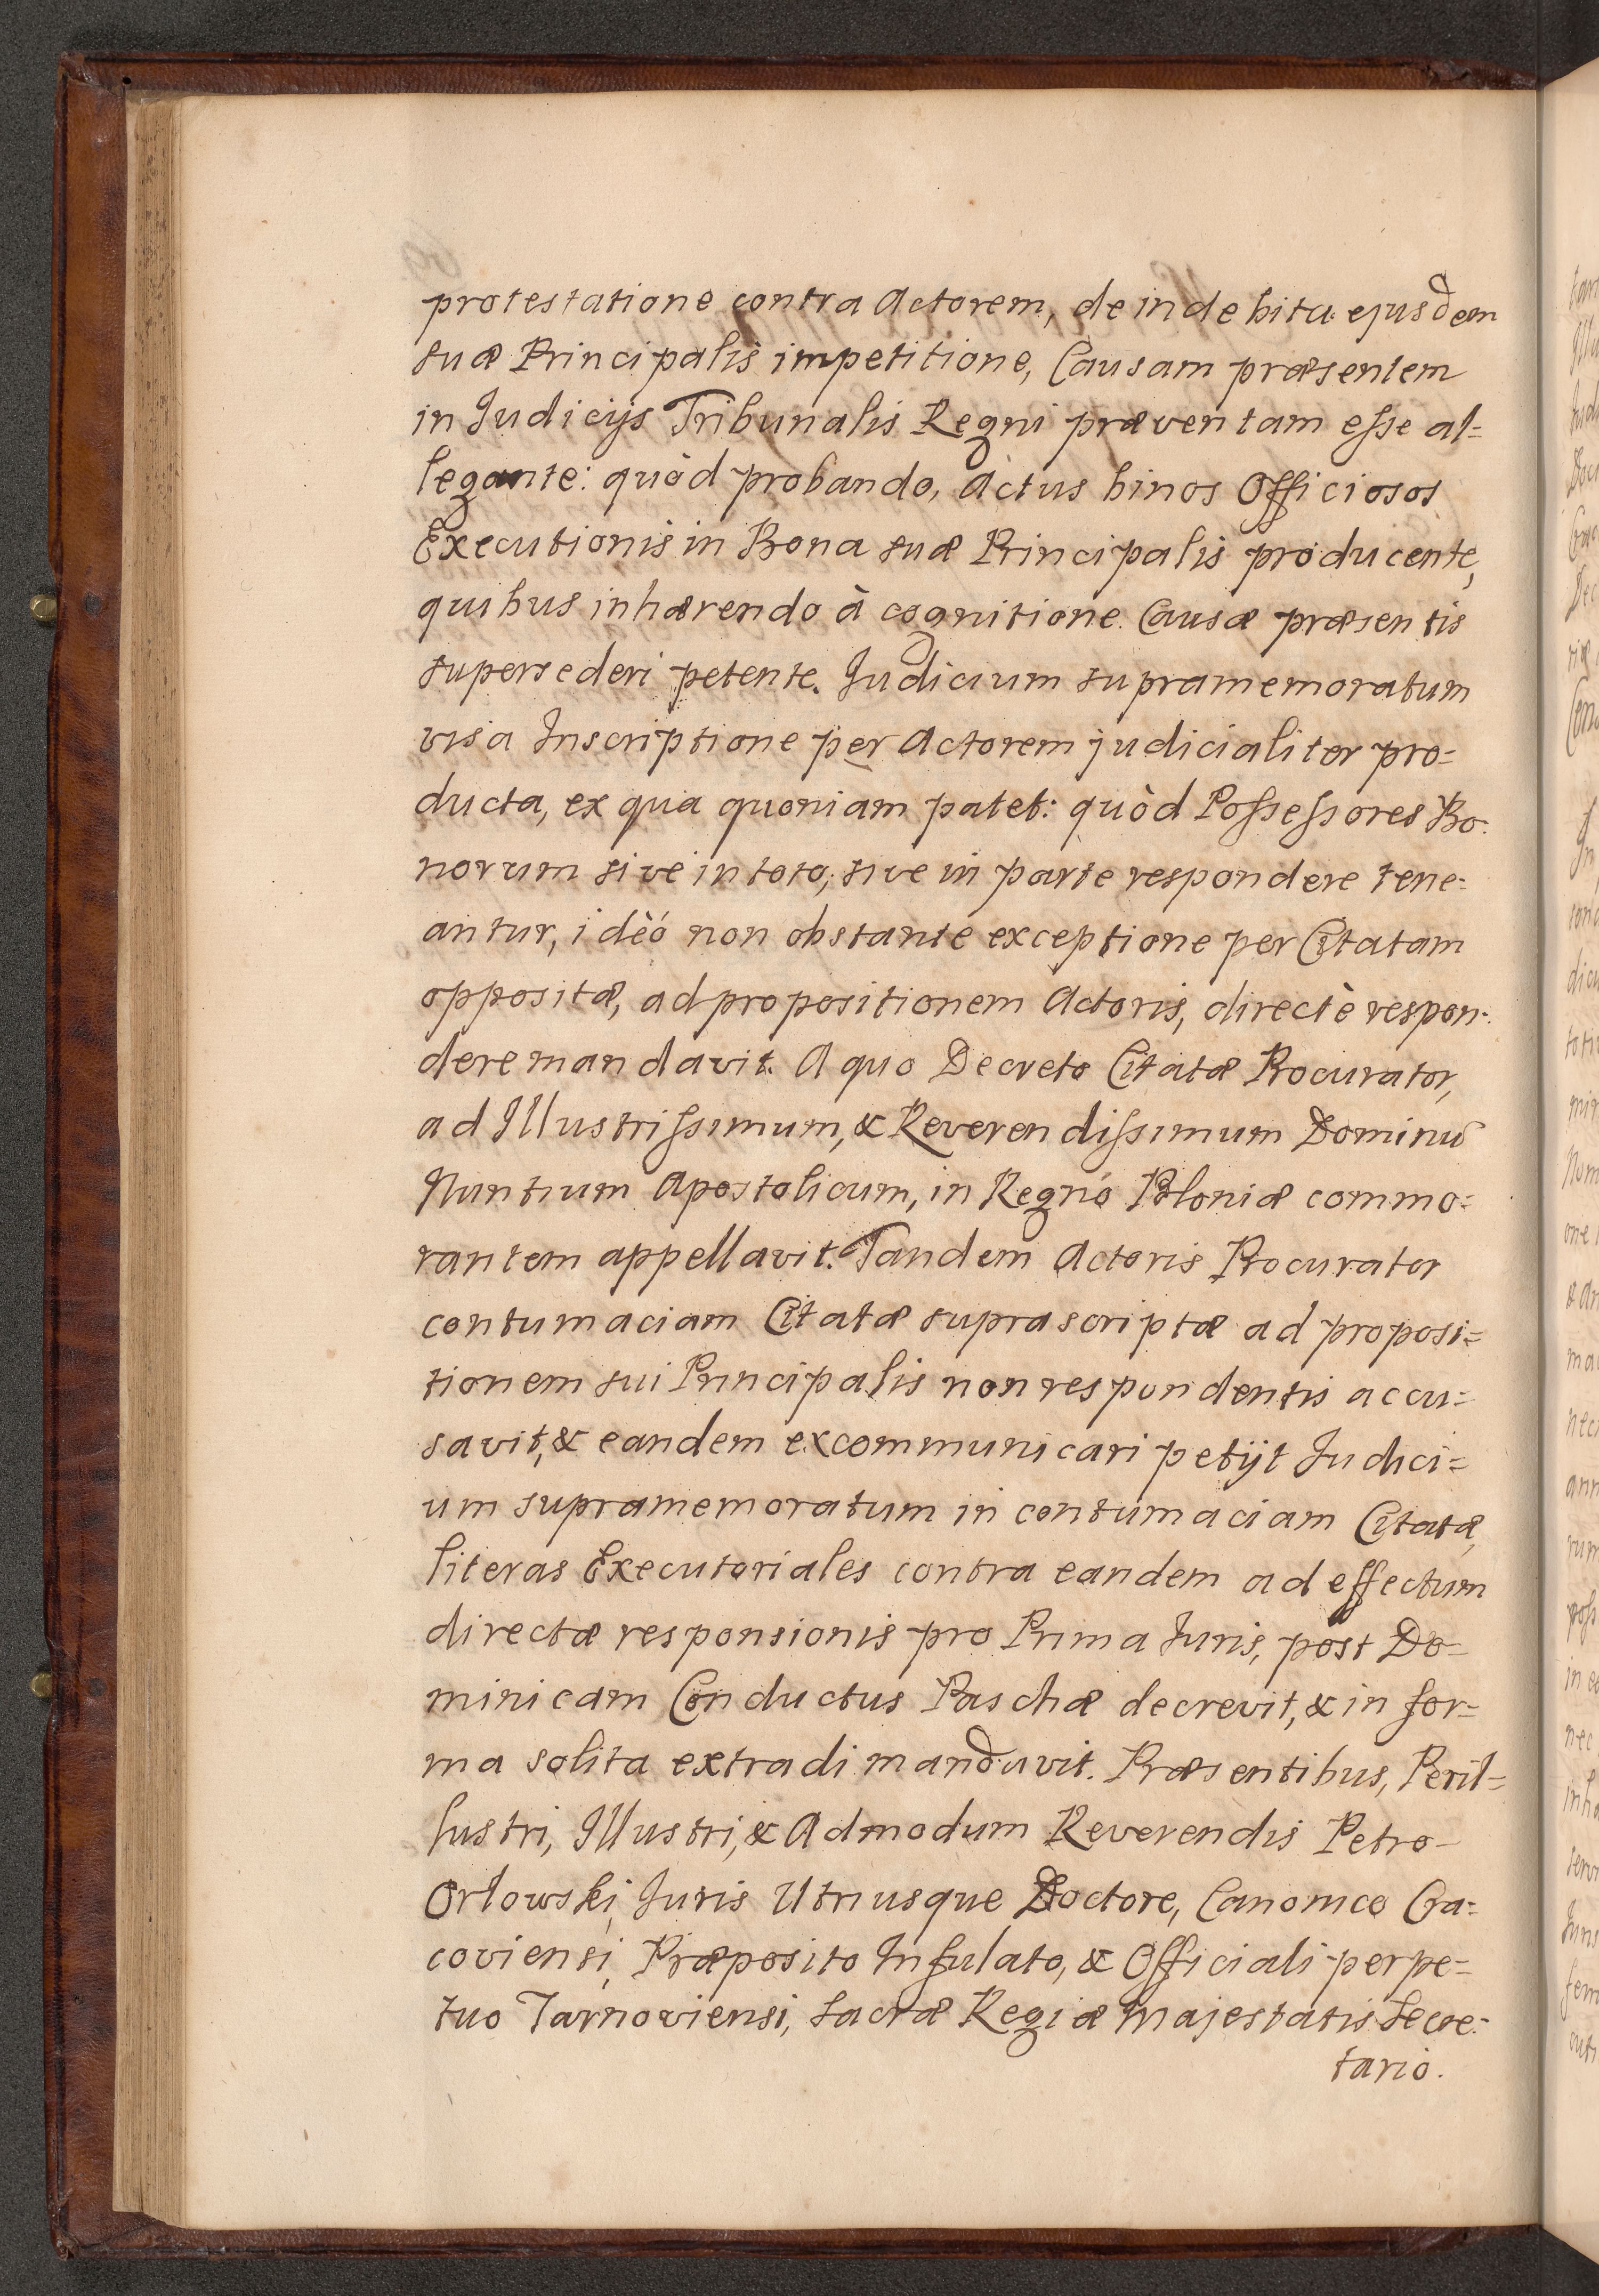 protestatione contra Actorem, de indebita ejusdem
suæ Principalis impetitione, Causam præsentem
in Judicijs Tribunalis Regni præventam esse al=
legante: quòd probando, Actus binos Officiosos
Executionis in Bona suæ Principalis producente,
quibus inhærendo à cognitione Causæ præsentis
supersederi petente. Judicium supramemoratum
visa Inscriptione per Actorem judicialiter pro=
ducta, ex qua quoniam patet: quòd Possessores Bo=
norum sive in toto, sive in parte respondere tene=
antur, idèó non obstante exceptione per Citatam
opposita, ad propositionem Actoris, directè respon=
dere mandavit. A quo Decreto Citatæ Procurator,
ad Illustrissimum, & Reverendissimum Dominũ
Nuntium Apostolicum, in Regno Poloniæ commo=
rantem appellavit. Tandem Actoris Procurator
contumaciam Citatæ suprascriptæ ad proposi=
tionem sui Principalis non respondentis accu=
savit, & eandem excommunicari petijt Judici=
um supramemoratum in contumaciam Citatæ,
literas Executoriales contra eandem ad effectum
directæ responsionis pro Prima Juris, post Do=
minicam Conductus Paschæ decrevit, & in for=
ma solita extradi mandavit. Præsentibus, Peril=
lustri, Illustri, & Admodum Reverendis Petro
Orlowski, Juris Utriusque Doctore, Canonico Cra=
coviensi, Præposito Infulato, & Officiali perpe=
tuo Tarnoviensi, Sacræ Regiæ Majestatis Secre=
tario.